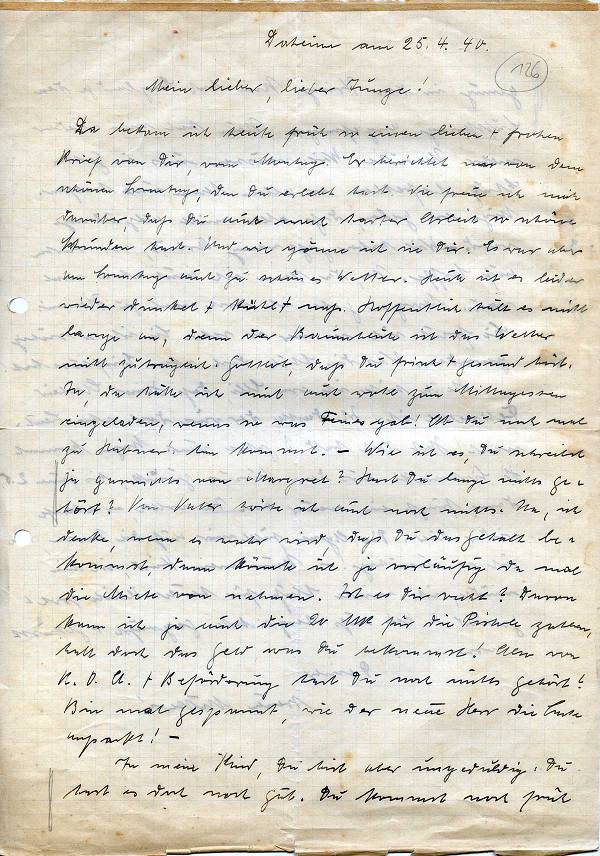 am 25.4.40.
126
Mein lieber, lieber Junge!
Da bekam ich heute früh so einen lieben + frohen
Brief von Dir, vom Montag. Er berichtet mir von dem
schönen Sonntag, den Du erlebt hast. Wie freue ich mich
darüber, daß Du auch nach harter Arbeit so schöne
Stunden hast. Und wie gönne ich sie Dir. Es war aber
am Sonntag auch zu schönes Wetter. Heute ist es leider
wieder dunkel + kühl + naß. Hoffentlich hält es nicht
lange an, denn der ist das Wetter
nicht zuträglich. Gottlob, daß Du frisch + gesund bist.
Ja, da hätte ich mich auch wohl zum Mittagessen
eingeladen, wenns so was Feines gab! Ob Du noch mal
zu hin kommst. – Wie ist es, Du schreibst
ja garnichts von Margret? Hast Du lange nichts ge-
hört? Von Vater hörte ich auch noch nichts. Na, ich
denke, wenn es wahr wird, daß Du das Gehalt be-
kommst, dann könnte ich ja vorläufig da mal
die Miete von nehmen. Ist es Dir recht? Davon
kann ich ja auch die 20 MK für die Pistole zahlen,
halt doch das Geld was Du bekommst! Also von
K.O.A. + Beförderung hast Du noch nichts gehört?
Bin mal gespannt, wie der neue Herr die Leute
anpackt! –
Ja mein Kind, Du bist aber ungeduldig. Du
hast es doch noch gut. Du kommst noch früh